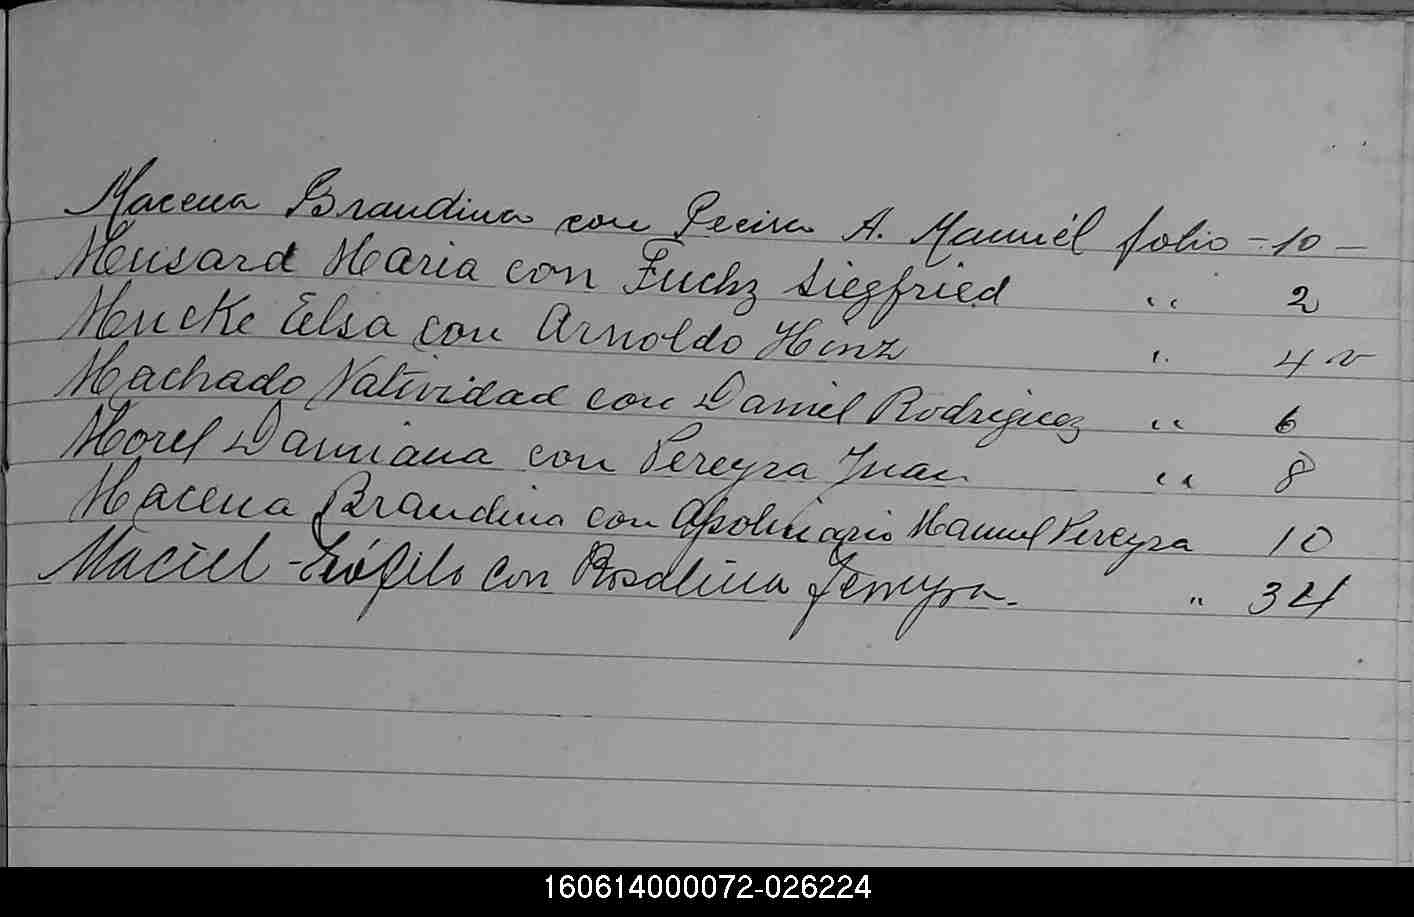 Macena Brandina con Pereira A. Manuél folio - 10 -
Mensard Maria con Fuchz Siegfried " 2
Mencke Elsa con Arnoldo Hinz " 4 v
Machado Natividad con Daniel Rodriguez " 6
Morel Damiana con Pereyra Juan " 8
Macena Brandina con Apolinario Manuel Pereyra 10
Maciel con Rosalina Ferreyra. " 34
160614000072-026224